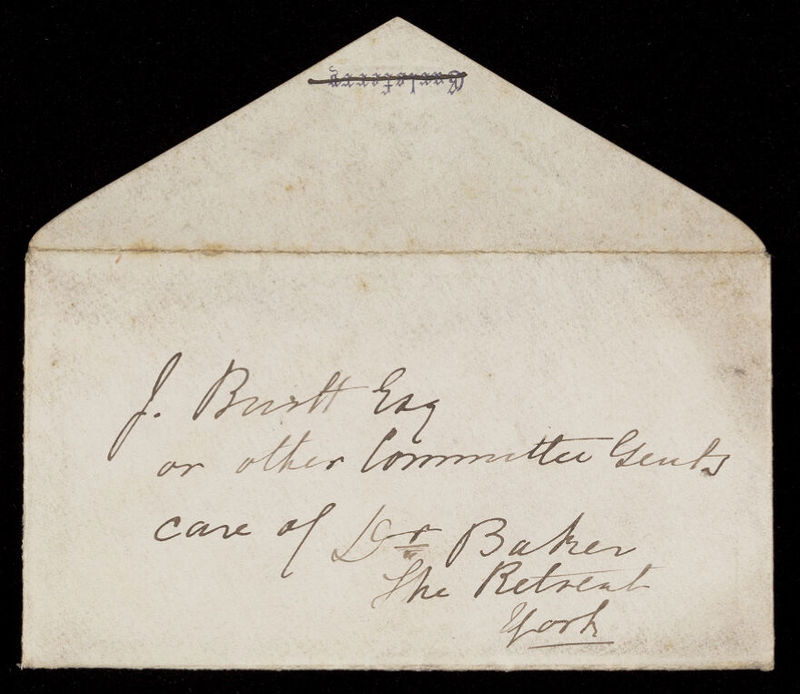 J. Burtt Esq
or other Committee Gents
care of Dr Baker
The Retreat
York